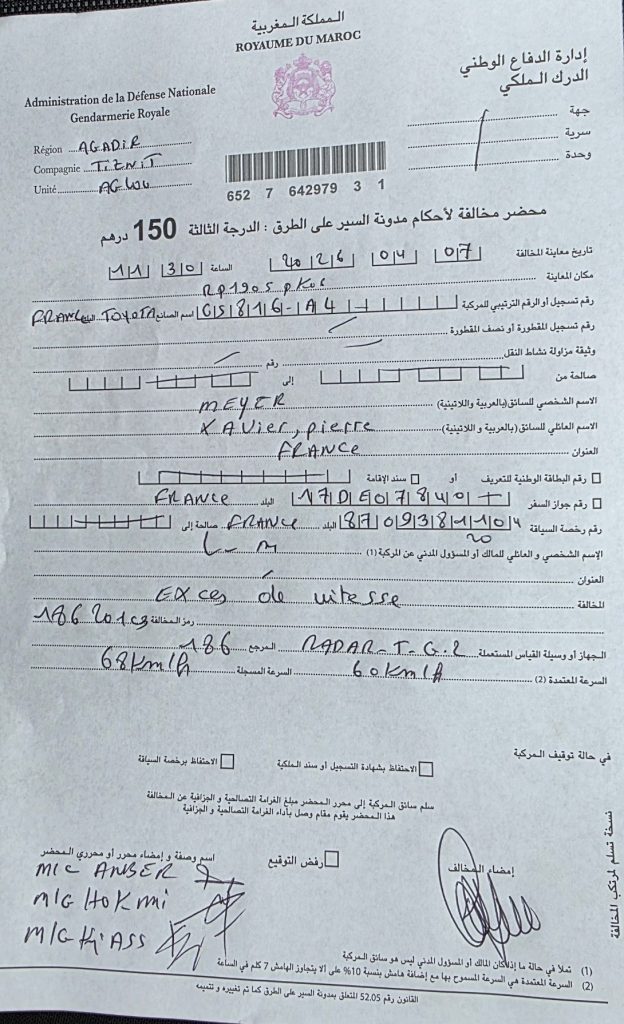 المملكة المغربية
ROYAUME DU MAROC
Administration de la Défense Nationale
Gendarmerie Royale
Région AGADIR
Compagnie TIZNIT
Unité AGLOU
إدارة الدفاع الوطني
الدرك الملكي
جهة
سرية
وحدة
652 7 642979 3 1
محضر مخالفة لأحكام مدونة السير على الطرق : الدرجة الثالثة 150 درهم
تاريخ معاينة المخالفة 07 04 2026 الساعة 11 30
مكان المعاينة RP1905 PK
رقم تسجيل أو الرقم الترتيبي للمركبة GS816-A4 اسم الصانع TOYOTA البلد FRANCE
رقم تسجيل المقطورة أو نصف المقطورة
وثيقة مزاولة نشاط النقل رقم
صالحة من إلى
الاسم الشخصي للسائق (بالعربية واللاتينية) MEYER
الاسم العائلي للسائق (بالعربية و اللاتينية) XAVier, pierre
العنوان FRANCE
رقم البطاقة الوطنية للتعريف أو سند الإقامة
رقم جواز السفر 17DE07840 البلد FRANCE
رقم رخصة السياقة البلد FRANCE صالحة إلى
الإسم الشخصي و العائلي للمالك أو المسؤول المدني عن المركبة (1)
العنوان
المخالفة EXces de vitesse
رمز المخالفة
الجهاز أو وسيلة القياس المستعملة RADAR-T-G.2 المرجع 186
السرعة المعتمدة (2) 60Km/h السرعة المسجلة 68Km/h
في حالة توقيف المركبة
الاحتفاظ بشهادة التسجيل أو سند الملكية
الاحتفاظ برخصة السياقة
سلم سائق المركبة إلى محرر المحضر مبلغ الغرامة التصالحية و الجزافية عن المخالفة
هذا المحضر يقوم مقام وصل بأداء الغرامة التصالحية و الجزافية
إمضاء المخالف
رفض التوقيع
اسم وصفة و إمضاء محرر أو محرري المحضر
M/C ANBER
M/G HOKMI
M/G
نسخة تسلم لمرتكب المخالفة
(1) تملأ في حالة ما إذا كان المالك أو المسؤول المدني ليس هو سائق المركبة
(2) السرعة المعتمدة هي السرعة المسموح بها مع إضافة هامش بنسبة 10% على ألا يتجاوز الهامش 7 كلم في الساعة
القانون رقم 52.05 المتعلق بمدونة السير على الطرق كما تم تغييره و تتميمه